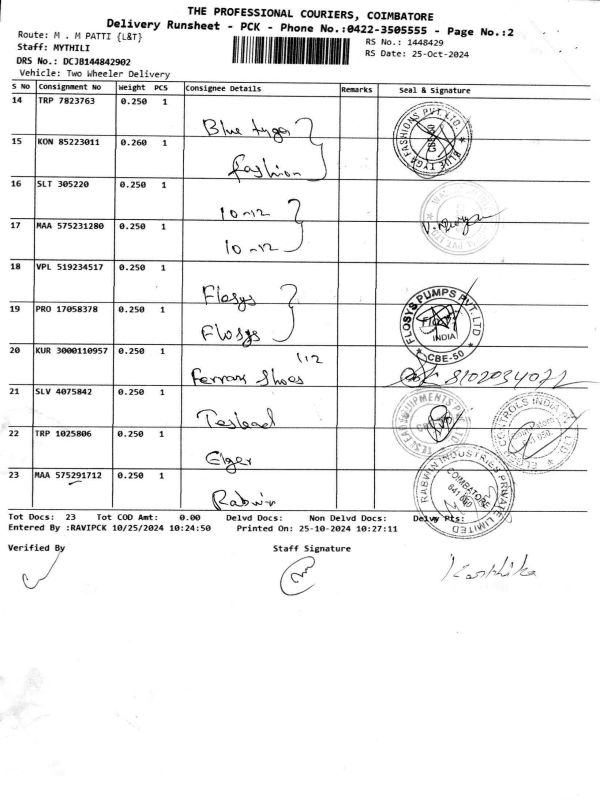 THE PROFESSIONAL COURIERS, COIMBATORE
Delivery Runsheet - PCK - Phone No.:0422-3505555 - Page No.:2
Route: M . M PATTI {L&T}
RS No.: 1448429
Staff: MYTHILI
RS Date: 25-Oct-2024
DRS No.: DCJB144842902
Vehicle: Two Wheeler Delivery
S No Consignment No Weight PCS Consignee Details Remarks Seal & Signature
14 TRP 7823763 0.250 1
Blue tyger
BLUE TYGA FASHIONS PVT LTD. CBE-50
15 KON 85223011 0.260 1
fashion
16 SLT 305220 0.250 1
10-12
17 MAA 575231280 0.250 1
10-12
18 VPL 519234517 0.250 1
Flosys
19 PRO 17058378 0.250 1
Flosys
FLOSYS PUMPS PVT. LTD INDIA CBE-50
20 KUR 3000110957 0.250 1
112
Ferrari Shoes
8102034072
21 SLV 4075842 0.250 1
Teslead
TESLEAD EQUIPMENTS
22 TRP 1025806 0.250 1
Elger
CONTROLS INDIA Coimbatore 641 050.
23 MAA 575291712 0.250 1
Rabwin
RABWIN INDUSTRIES PRIVATE LIMITED COIMBATORE
Tot Docs: 23 Tot COD Amt: 0.00 Delvd Docs: Non Delvd Docs: Delvy Pts:
Entered By :RAVIPCK 10/25/2024 10:24:50 Printed On: 25-10-2024 10:27:11
Verified By Staff Signature
Karthika